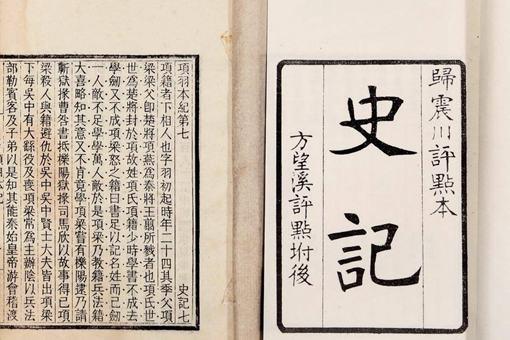 歸震川評點本
史記
方望溪評點坿後
項羽本紀第七　史記七
項籍者下相人也字羽初起時年二十四其季父項
梁梁父即楚將項燕爲秦將王翦所戮者也項氏世
世爲楚將封於項故姓項氏項籍少時學書不成去
學劍又不成項梁怒之籍曰書足以記名姓而已劍
一人敵不足學學萬人敵於是項梁乃教籍兵法籍
大喜略知其意又不肯竟學項梁嘗有櫟陽逮乃請
蘄獄掾曹咎書抵櫟陽獄掾司馬欣以故事得已項
梁殺人與籍避仇於吳中吳中賢士大夫皆出項梁
下每吳中有大繇役及喪項梁常爲主辦陰以兵法
部勒賓客及子弟以是知其能秦始皇帝游會稽渡